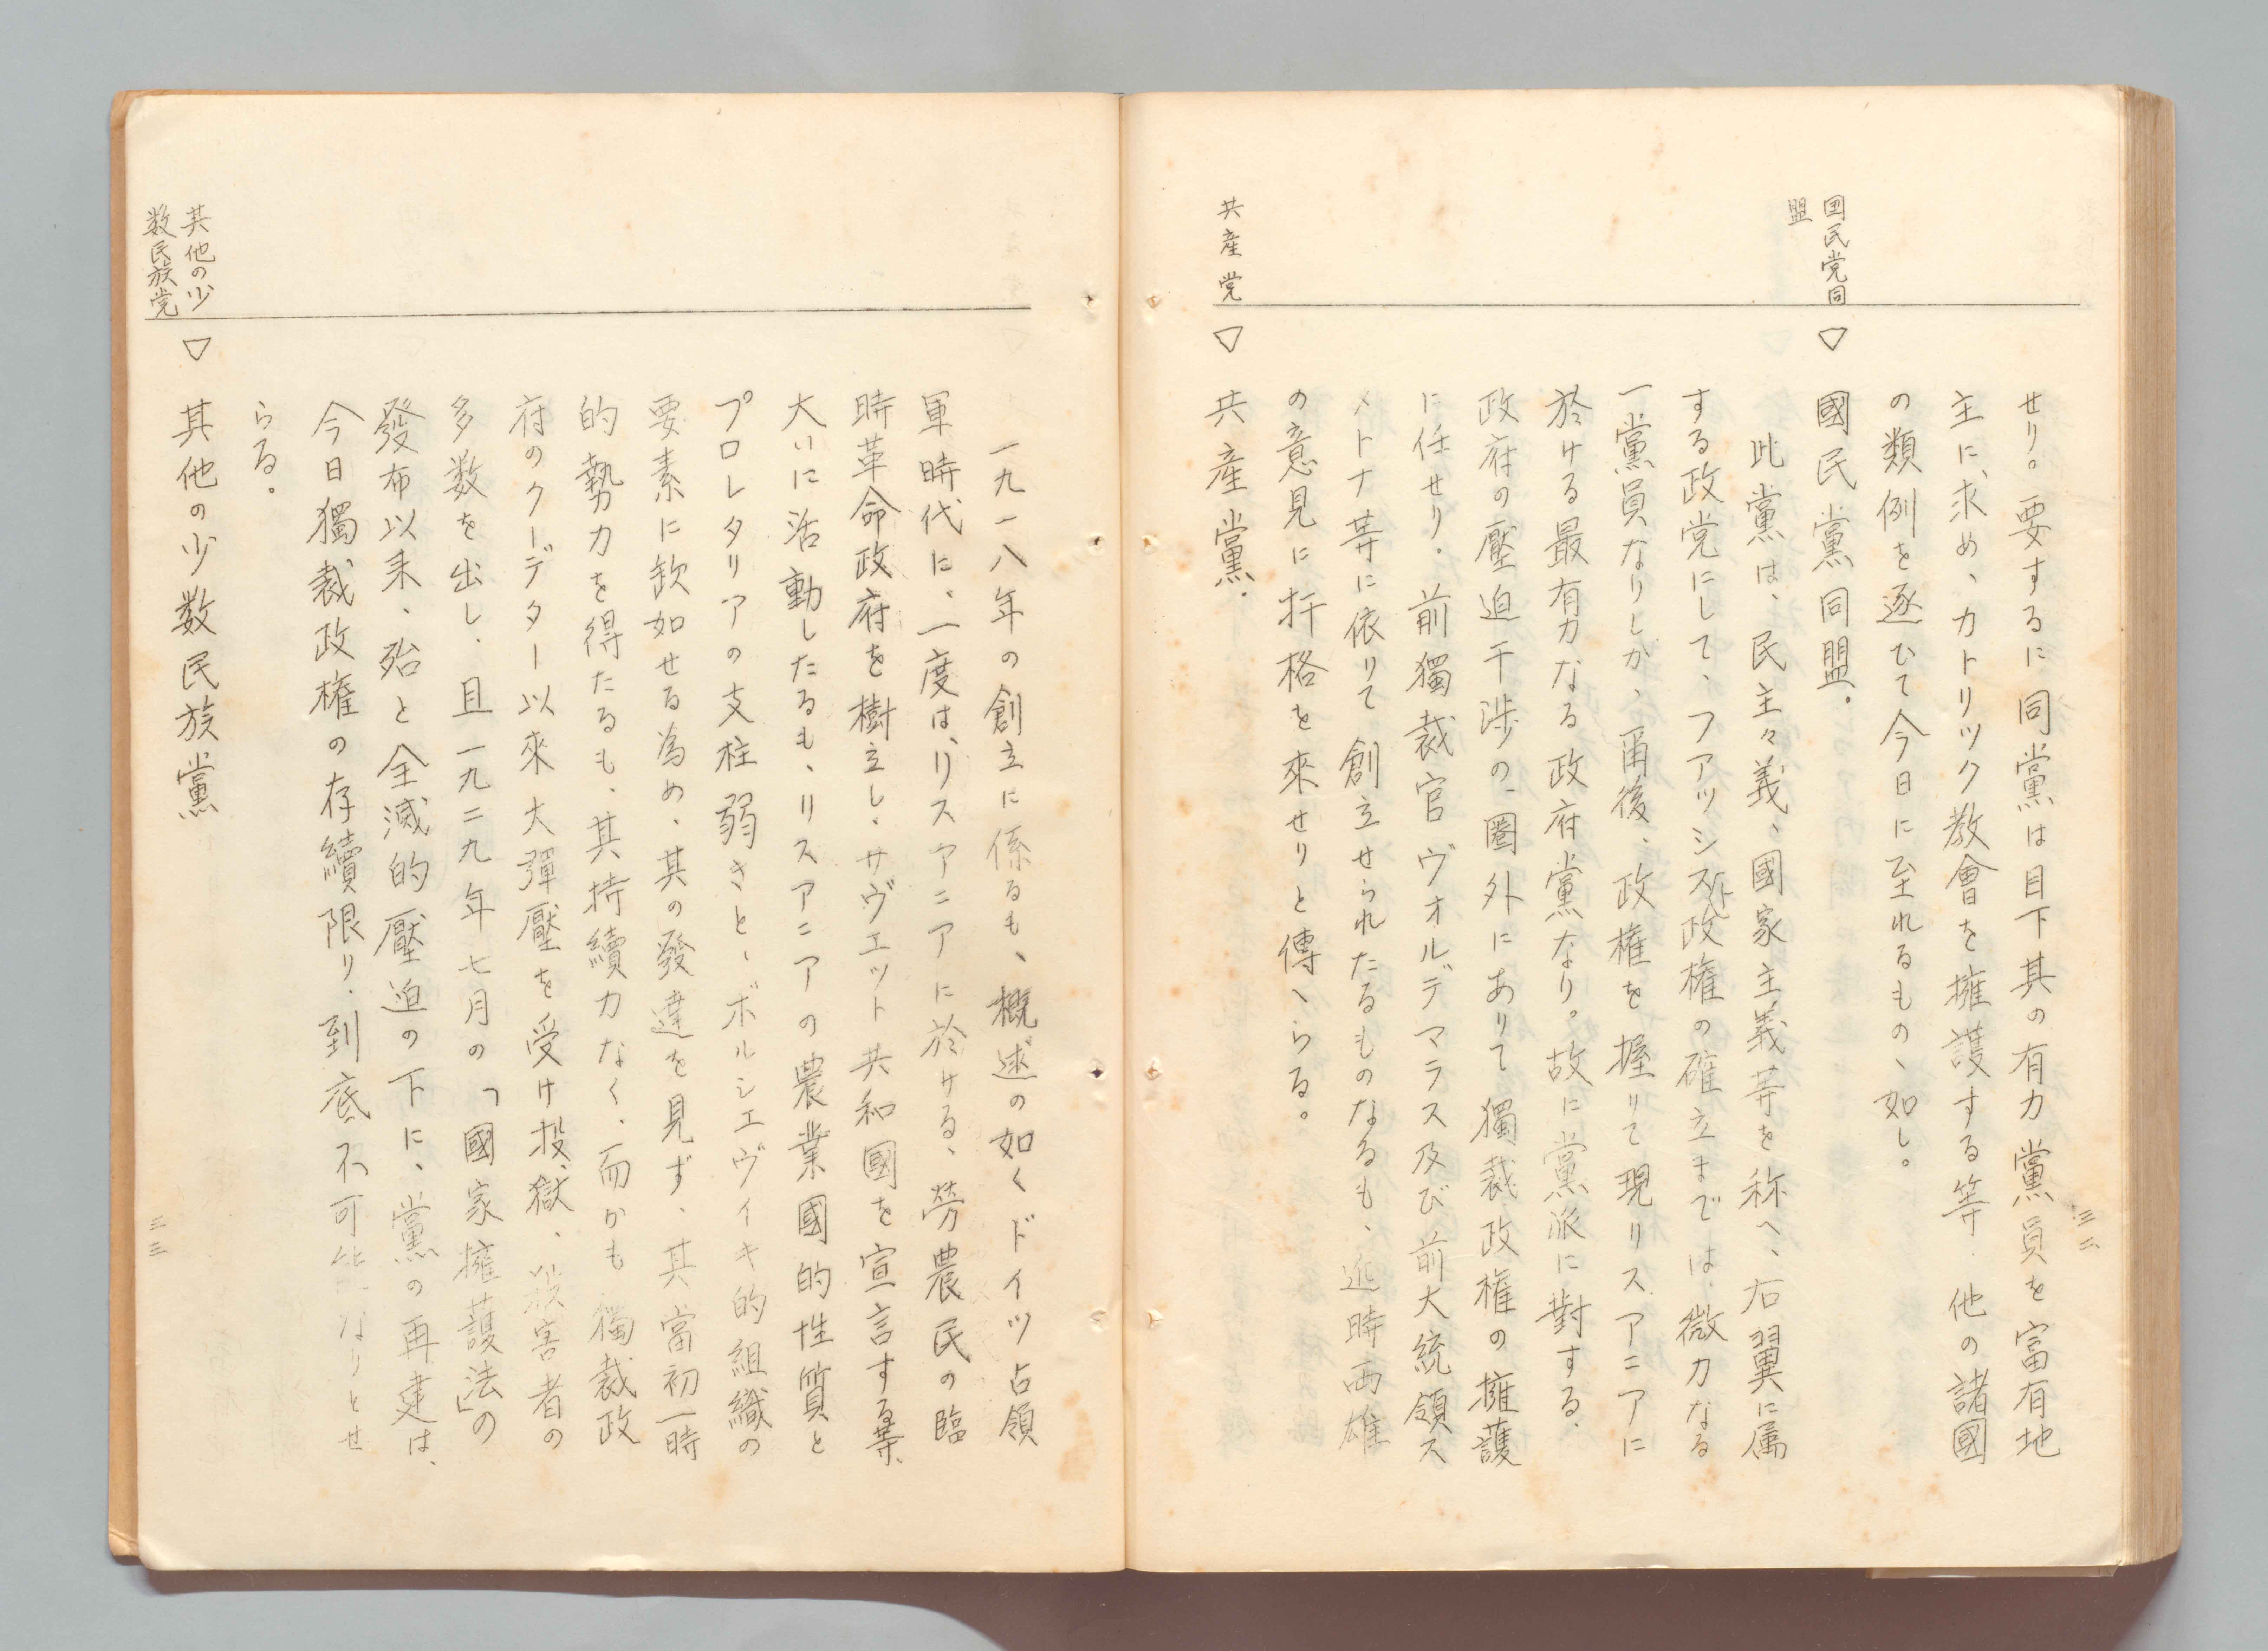 三二
せり。要するに同黨は目下其の有力黨員を富有地
主に、求め、カトリック教會を擁護する等、他の諸國
の類例を逐ひて今日に至れるものヽ如し。
国民党同
盟
▽ 國民黨同盟。
此黨は、民主々義、國家主義等を称へ、右翼に属
する政党にして、ファッシスト政権の確立までは、微力なる
一黨員なりしが、爾後、政権を握りて現リスアニアに
於ける最有力なる政府黨なり。故に黨派に對する、
政府の壓迫干渉の、圏外にありて獨裁政権の擁護
に任せり。前獨裁官ヴォルデマラス及び前大統領ス
メトナ等に依りて創立せられたるものなるも、近時両雄
の意見に扞格を來せりと傳へらる。
共産党
▽ 共産黨.
一九一八年の創立に係るも、概述の如くドイツ占領
軍時代に、一度は、リスアニアに於ける、勞農民の臨
時革命政府を樹立し、サヴエット共和國を宣言する等、
大いに活動したるも、リスアニアの農業國的性質と
プロレタリアの支柱弱きと、ボルシエヴィキ的組織の
要素に欽如せる為め、其の發達を見ず、其當初一時
的勢力を得たるも、其持續力なく、而かも獨裁政
府のクーデター以來大彈壓を受け投獄、殺害者の
多数を出し、且一九二九年七月の「國家擁護法」の
發布以来、殆と全滅的壓迫の下に、黨の再建は、
今日獨裁政権の存續限り、到底不可能なりとせ
らる。
其他の少
数民族党
▽ 其他の少数民族黨
三三